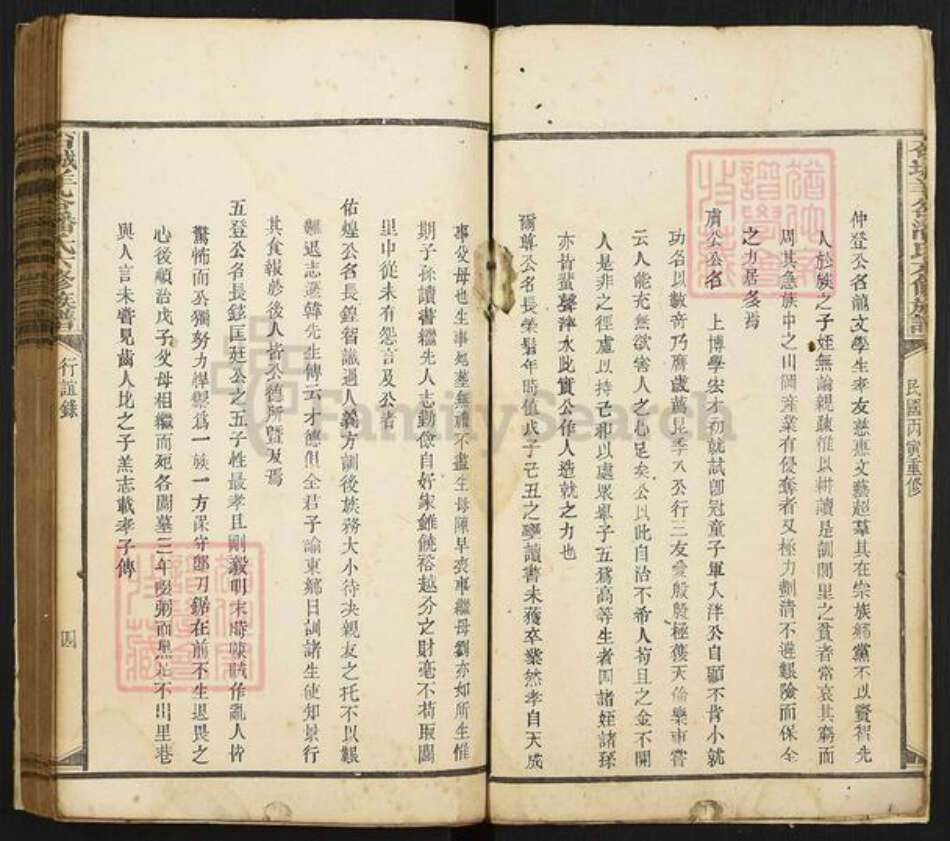 仲登公名龍文學生孝友慈惠文藝超羣其在宗族鄉黨不以賢智先
人於族之子姪無論親疎惟以耕讀是訓閭里之貧者常哀其窮而
周其急族中之山岡產業有侵奪者又極力劃清不避艱險而保全
之力居多焉
賡公公名 上博學宏才初就試卽冠童子軍入泮公自顧不肯小就
功名以數奇乃膺歲薦昆季八公行三友愛殷殷極獲天倫樂事嘗
云人能充無欲害人之心足矣公以此自治不希人苟且之金不開
人是非之徑處以持己和以處眾舉子五為高等生者四諸姪諸孫
亦皆蜚聲泮水此實公作人造就之力也
爾尊公名長榮髫年時值戊子己丑之變讀書未獲卒業然孝自天成
事父母也生事死葬無禮不盡生母陳早喪事繼母劉亦如所生惟
期子孫讀書繼先人志勤儉自好家雖饒裕越分之財毫不苟取閭
里中從未有怨言及公者
佑煌公名長鍠智識過人義方訓後族務大小待決親友之托不以艱
難退志遜韓先生傳云才德俱全君子諭東鄉日訓諸生使知景行
其食報於後人皆公德所暨及焉
五登公名長鋕匡廷公之五子性最孝且剛毅明末時棟賊作亂人皆
驚怖而公獨努力捍禦為一族一方保守卽刃鋸在前不生退畏之
心後順治戊子父母相繼而死各閭墓三年啜粥而黑足不出里巷
與人言未嘗見齒人比之子羔志載孝子傳
行誼錄
四
民國丙寅重修
FamilySearch